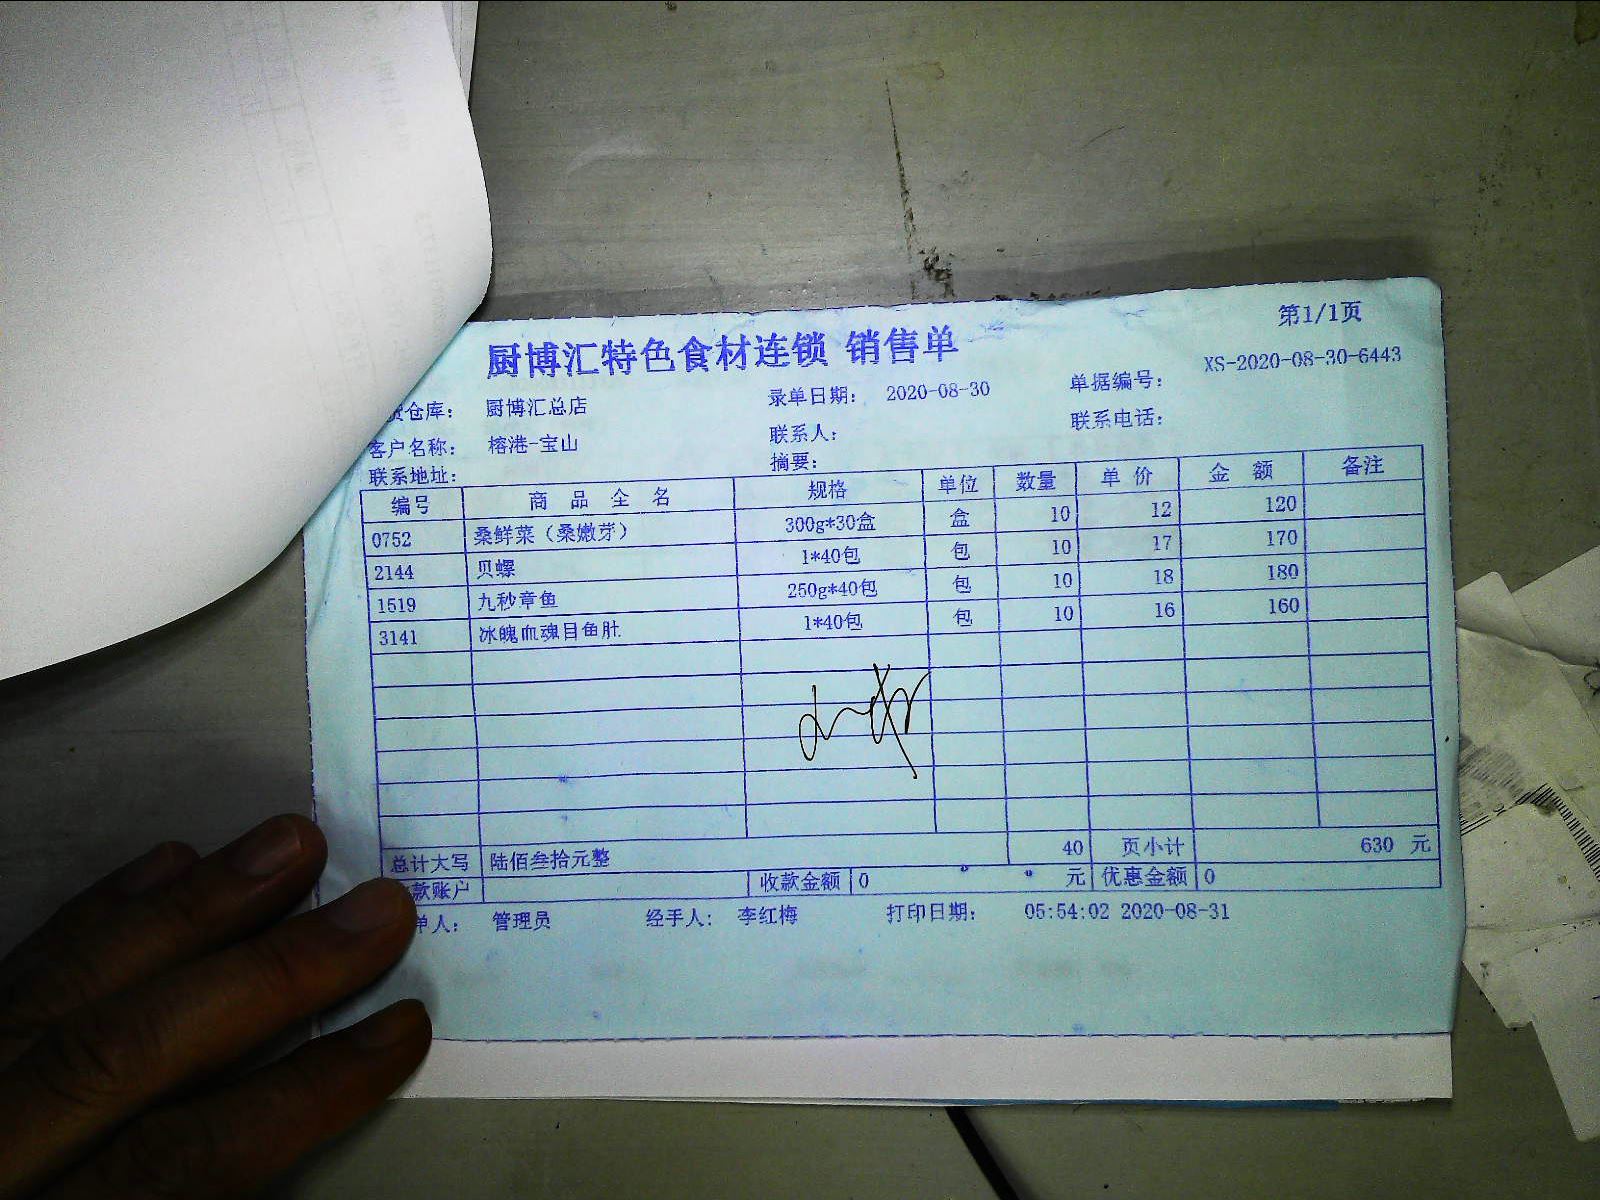 第1/1页
厨博汇特色食材连锁 销售单
货仓库： 厨博汇总店 录单日期： 2020-08-30 单据编号： XS-2020-08-30-6443
客户名称： 榕港-宝山 联系人： 联系电话：
联系地址： 摘要：
编号 商品全名 规格 单位 数量 单价 金额 备注
0752 桑鲜菜（桑嫩芽） 300g*30盒 盒 10 12 120
2144 贝螺 1*40包 包 10 17 170
1519 九秒章鱼 250g*40包 包 10 18 180
3141 冰魄血魂目鱼肚 1*40包 包 10 16 160
总计大写 陆佰叁拾元整 40 页小计 630 元
款账户 收款金额 0 元 优惠金额 0
单人： 管理员 经手人： 李红梅 打印日期： 05:54:02 2020-08-31